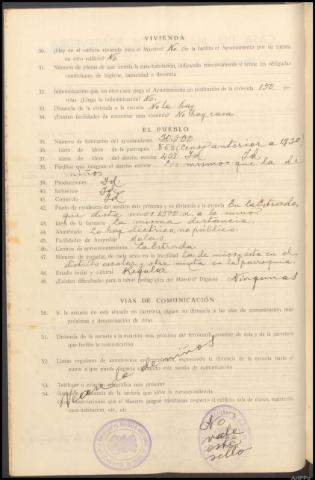 VIVIENDA
30. ¿Hay en el edificio vivienda para el Maestro? No ¿Se la facilita el Ayuntamiento por su cuenta
en otro edificio? No
31. Número de plazas de que consta la casa-habitación, indicando concretamente si reúne las obligadas
condiciones de higiene, capacidad y decencia
32. Indemnización que, en otro caso, paga el Ayuntamiento en sustitución de la vivienda 150 pe-
setas. ¿Llega la indemnización? No.
33. Distancia de la vivienda a la escuela No la hay
34. ¿Existen facilidades de encontrar casa vivienda? No hay casa
EL PUEBLO
35. Número de habitantes del ayuntamiento 30.000
36. Idem de idem de la parroquia 868 (Censo anterior a 1930
37. Idem de idem del distrito escolar 409 Id Id
38. Pueblos que integran el distrito escolar Los mismos que la de
niños
39. Producciones Id
40. Industrias Id
41. Comercio Id
42. Punto de residencia del médico más próximo y su distancia a la escuela En La Estrada,
que dista unos 6500 m. a lo menos
43. Idem de la farmacia La misma distancia
44. Alumbrado Lo hay eléctrico, no público
45. Facilidades de hospedaje Malas
46. Centros de aprovisionamiento La Estrada
47. Número de escuelas de cada sexo en la localidad Las de niños, esta en el
distrito escolar y otra mixta en la parroquia
48. Estado social y cultural Regular
49. ¿Existen dificultades para la labor pedagógica del Maestro? Díganse Ningunas
VIAS DE COMUNICACIÓN
50. Si la escuela no está situada en carretera, dígase su distancia a las vías de comunicación más
próximas y denominación de éstas
51. Distancia de la escuela a la estación más próxima del ferrocarril, nombre de ésta y de la carretera
que facilite la comunicación
52. Líneas regulares de automóviles
expresando la distancia de la escuela hasta el
punto a que pueda llegarse utilizando este medio de comunicación
53. Teléfono o telégrafo más próximo
54.
de la cartería que sirve la correspondencia
que el Maestro juzgue oportunas respecto al edificio, sala de clases, matrícula,
casa-habitación, etc., etc.
la de niños
No
vale
este
sello